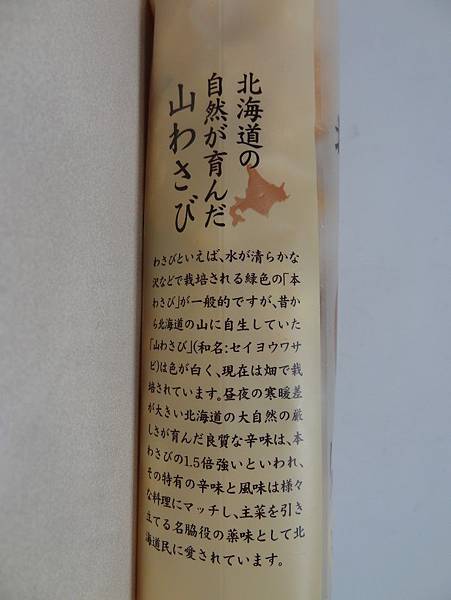 北海道の
自然が育んだ
山わさび
わさびといえば、水が清らかな
沢などで栽培される緑色の「本
わさび」が一般的ですが、昔か
ら北海道の山に自生していた
「山わさび」(和名:セイヨウワサ
ビ)は色が白く、現在は畑で栽
培されています。昼夜の寒暖差
が大きい北海道の大自然の厳
しさが育んだ良質な辛味は、本
わさびの1.5倍強いといわれ、
その特有の辛味と風味は様々
な料理にマッチし、主菜を引き
立てる名脇役の薬味として北
海道民に愛されています。